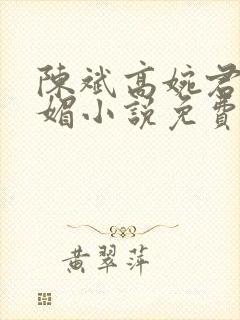 陳斌高婉君
媚小說免費
黃翠萍